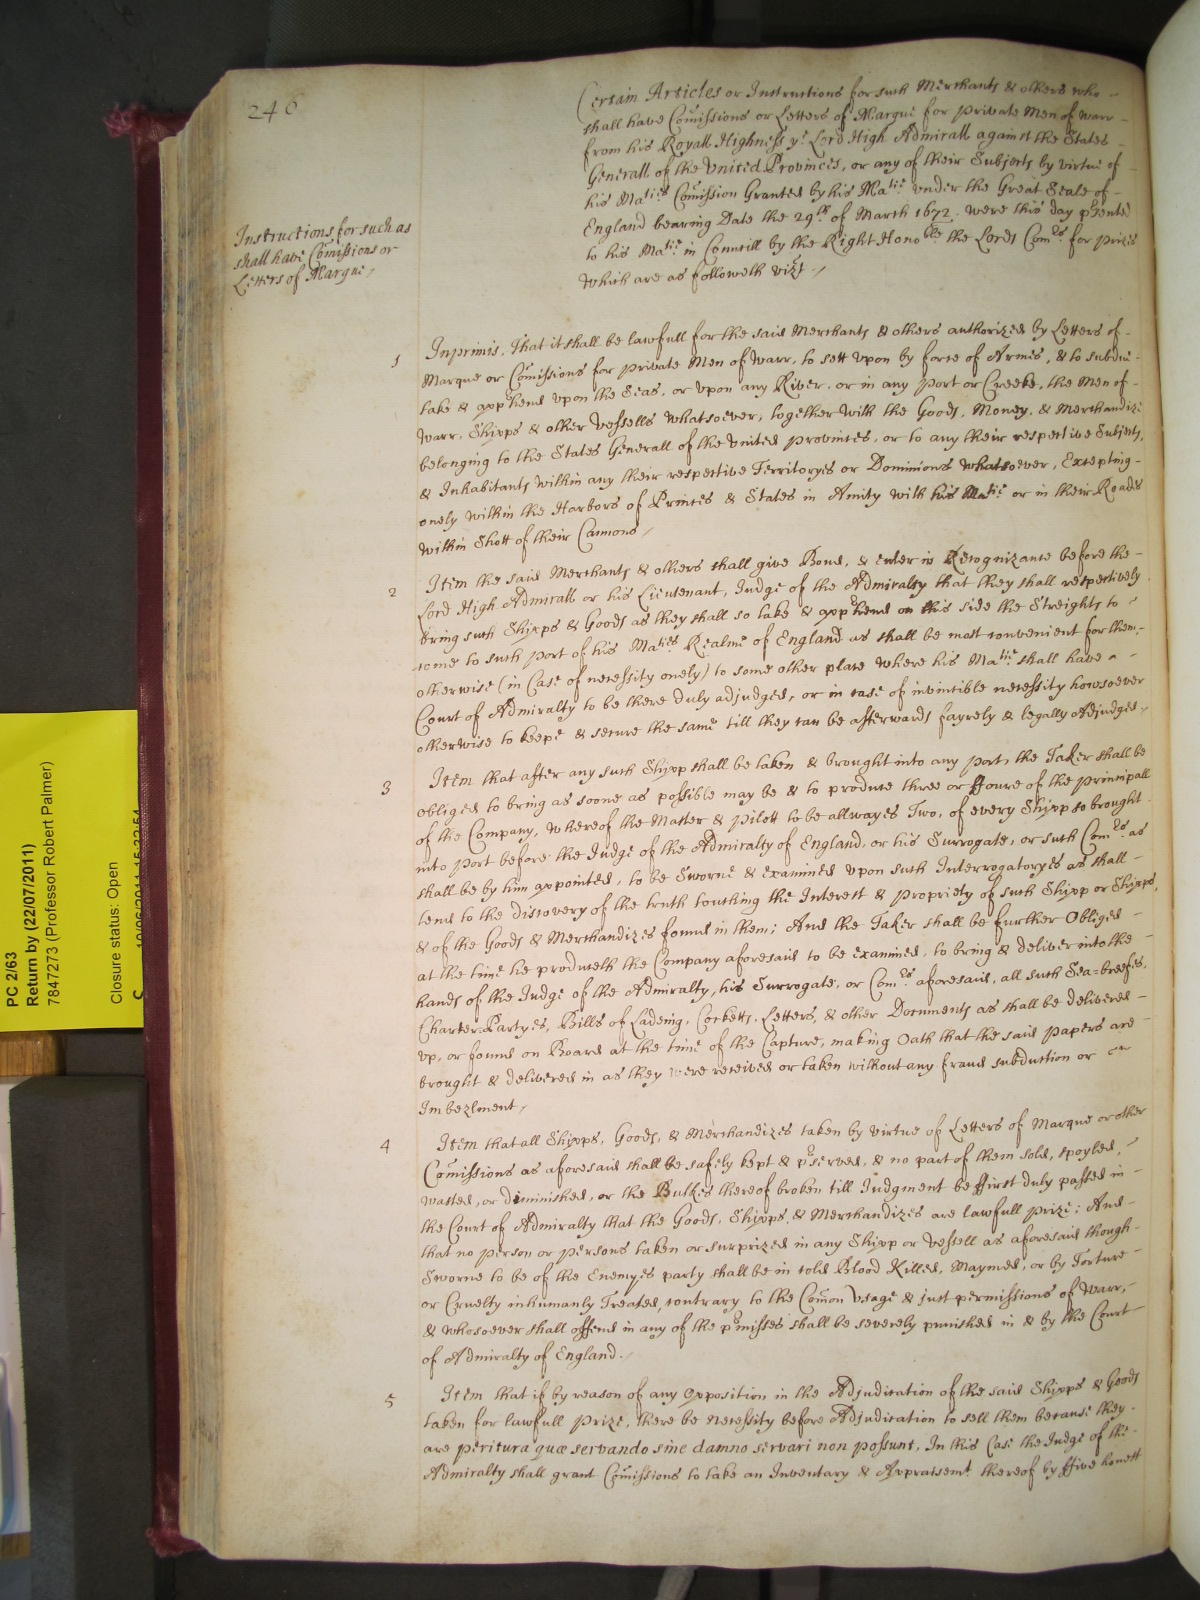 246
Certain Articles or Instructions for such Merchants & others who
shall have Comissions or Letters of Marque for private Men of warr
from his Royall Highness ye Lord High Admirall against the States
Generall of the United Provinces, or any of their Subjects by virtue of
his Maties Comission Granted by his Matie under the Great Seale of
England bearing Date the 29th of March 1672. were this day pr̃sented
to his Matie in Councill by the Right Honoble the Lords Comrs for prizes
which are as followeth vizt
Instructions for such as
shall have Comissions or
Letters of Marque
1 Inprimis, That it shall be lawfull for the said Merchants & others authorized by Letters of
Marque or Comissions for private Men of Warr, to sett upon by force of Armes, & to subdue
take & appr̃hend upon the Seas, or upon any River, or in any Port or Creeke, the Men of
Warr, Shipps & other Vessells whatsoever, together with the Goods, Money, & Merchandize
belonging to the States Generall of the United provinces, or to any their respective Subjects,
& Inhabitants within any their respective Territoryes or Dominions whatsoever, Excepting
onely within the Harbors of Princes & States in Amity with his Matie or in their Roads
within Shott of their Cannons
2 Item the said Merchants & others shall give Bond, & enter in Recognizance before the
Lord High Admirall or his Lieutenant, Judge of the Admiralty that they shall respectively
bring such Shipps & Goods as they shall so take & appr̃hend on this side the Streights to
come to such port of his Maties Realme of England as shall be most convenient for them,
otherwise (in Case of necessity onely) to some other place where his Matie shall have a
Court of Admiralty to be there duly adjudged, or in case of invincible necessity howsoever
otherwise to keepe & secure the same till they can be afterwards fayrely & legally Adjudged
3 Item that after any such Shipp shall be taken & brought into any port, the Taker shall be
obliged to bring as soone as possible may be & to produce three or ffoure of the principall
of the Company, whereof the Master & Pilott to be allwayes Two, of every Shipp so brought
into port before the Judge of the Admiralty of England, or his Surrogate, or such Comrs as
shall be by him appointed, to be Sworne & examined upon such Interrogatoryes as shall
tend to the discovery of the truth touching the Interest & propriety of such Shipp or Shipps,
& of the Goods & Merchandizes found in them; And the Taker shall be further Obliged
at the time he produceth the Company aforesaid to be examined, to bring & deliver into the
hands of the Judge of the Admiralty, his Surrogate, or Comrs aforesaid, all such Sea=breefes,
Charter=Partyes, Bills of Ladeing, Cocketts, Letters, & other Documents as shall be delivered
up, or found on Board at the time of the Capture, making Oath that the said papers are
brought & delivered in as they were received or taken without any fraud subduction or
Imbezlment
4 Item that all Shipps, Goods, & Merchandizes taken by virtue of Letters of Marque or other
Comissions as aforesaid shall be safely kept & pr̃served, & no part of them sold, spoyled,
wasted, or diminished, or the Bulkes thereof broken till Judgment be ffirst duly passed in
the Court of Admiralty that the Goods, Shipps, & Merchandizes are lawfull prize; And
that no person or persons taken or surprized in any Shipp or Vessell as aforesaid though
Sworne to be of the Enemyes party shall be in cold Blood Killed, Maymed, or by Torture
or Cruelty inhumanly Treated, contrary to the Comon Usage & just permissions of Warr,
& whosoever shall offend in any of the pr̃misses shall be severely punished in & by the Court
of Admiralty of England.
5 Item that if by reason of any Opposition in the Adjudication of the said Shipps & Goods
taken for lawfull Prize, there be necessity before Adjudication to sell them because they
are peritura quæ servando sine damno servari non possunt, In this Case the Judge of the
Admiralty shall grant Comissions to take an Inventary & Appraisemt thereof by ffive honest
PC 2/63
Return by (22/07/2011)
7847273 (Professor Robert Palmer)
Closure status: Open